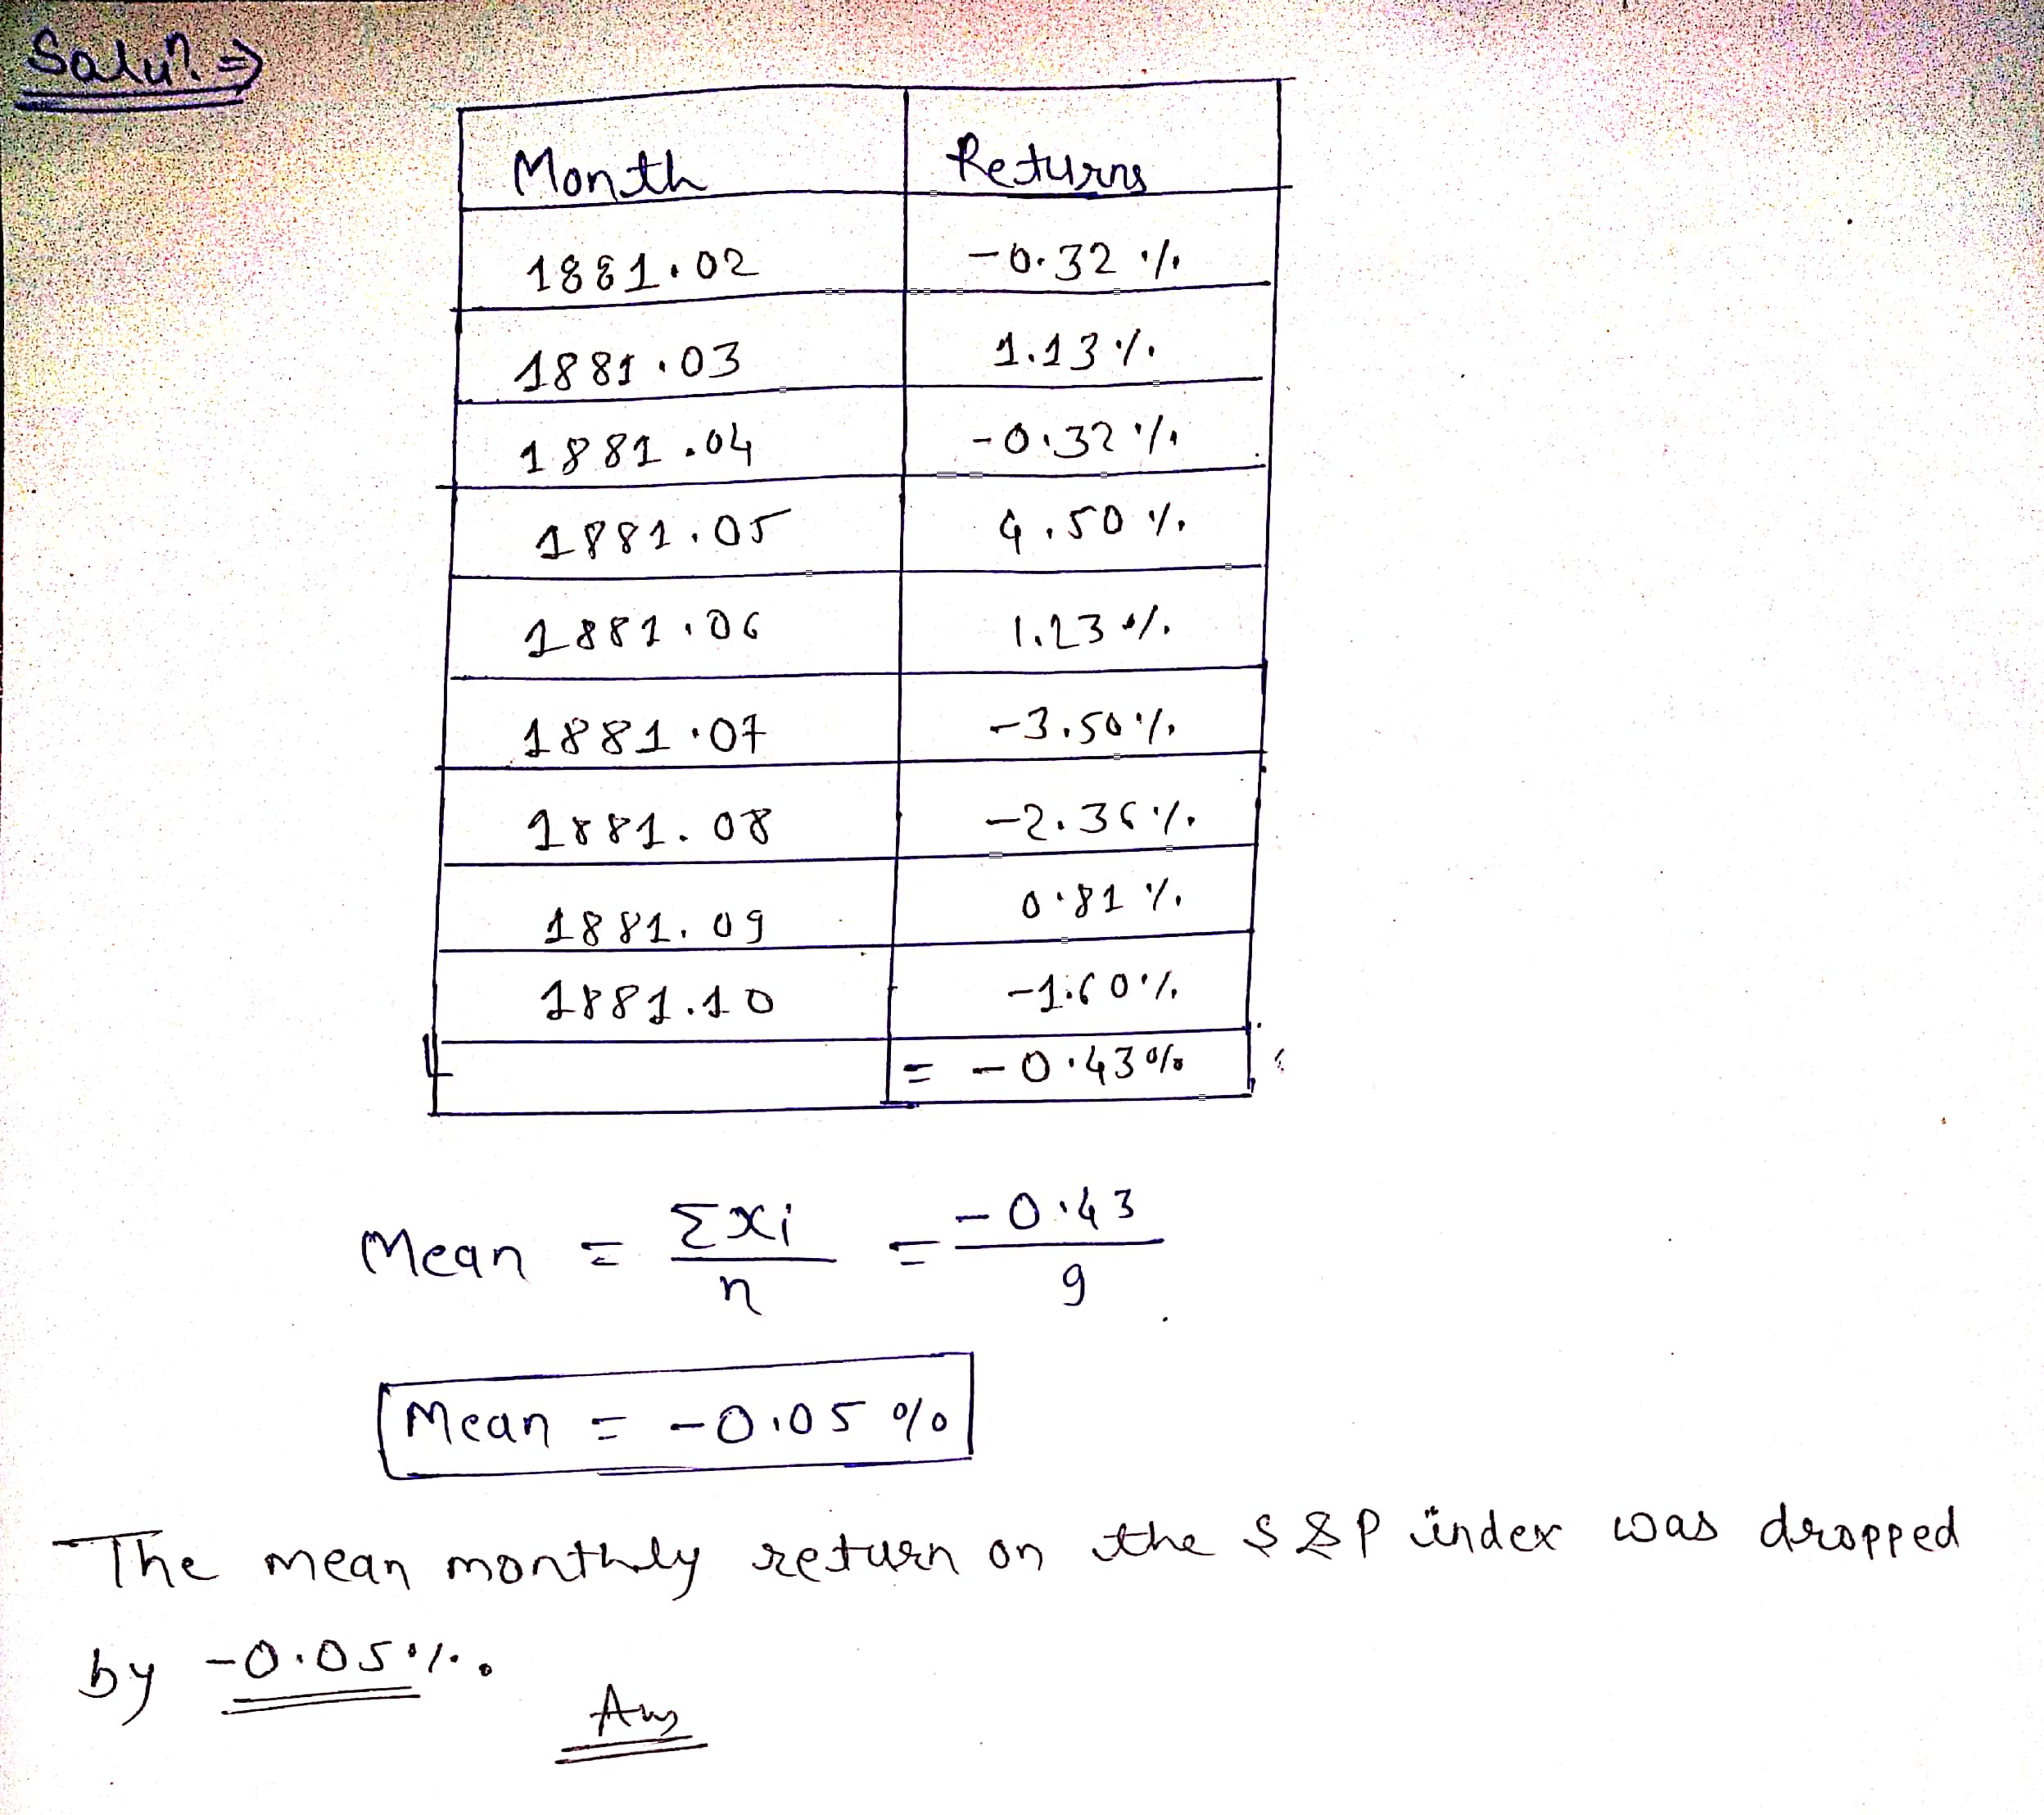 Solun. ⇒
Month Returns
1881.02 -0.32 %
1881.03 1.13 %
1881.04 -0.32 %
1881.05 4.50 %
1881.06 1.23 %
1881.07 -3.50 %
1881.08 -2.36 %
1881.09 0.81 %
1881.10 -1.60 %
= -0.43 %
Mean = Σxi / n = -0.43 / 9
Mean = -0.05 %
The mean monthly return on the S&P index was dropped
by -0.05 %.
Ans